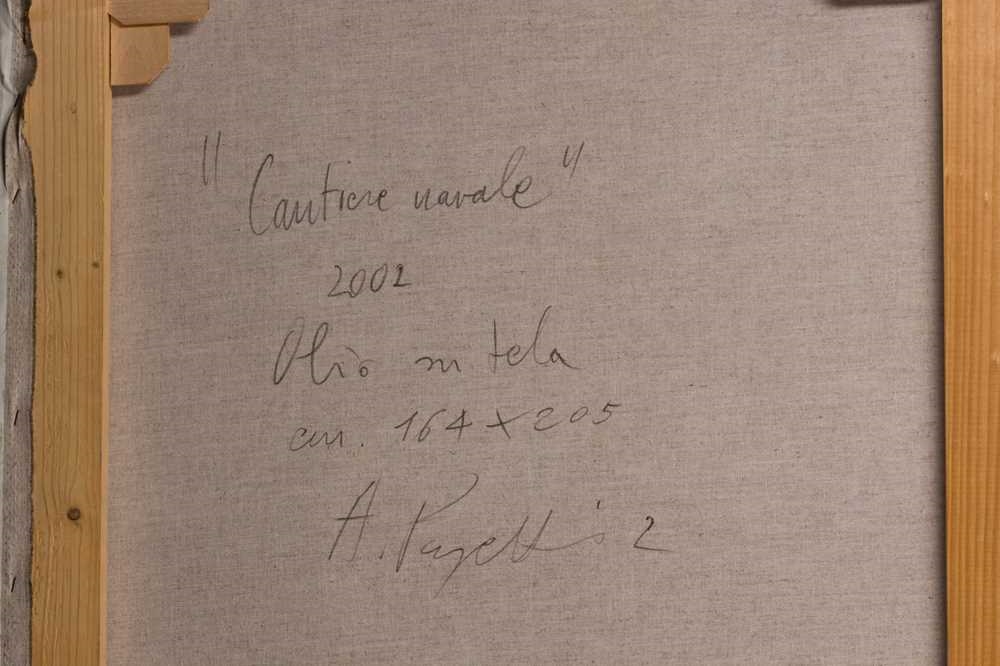 "Cantiere navale"
2002
Olio su tela
cm. 164 X 205
A. Papetti 2